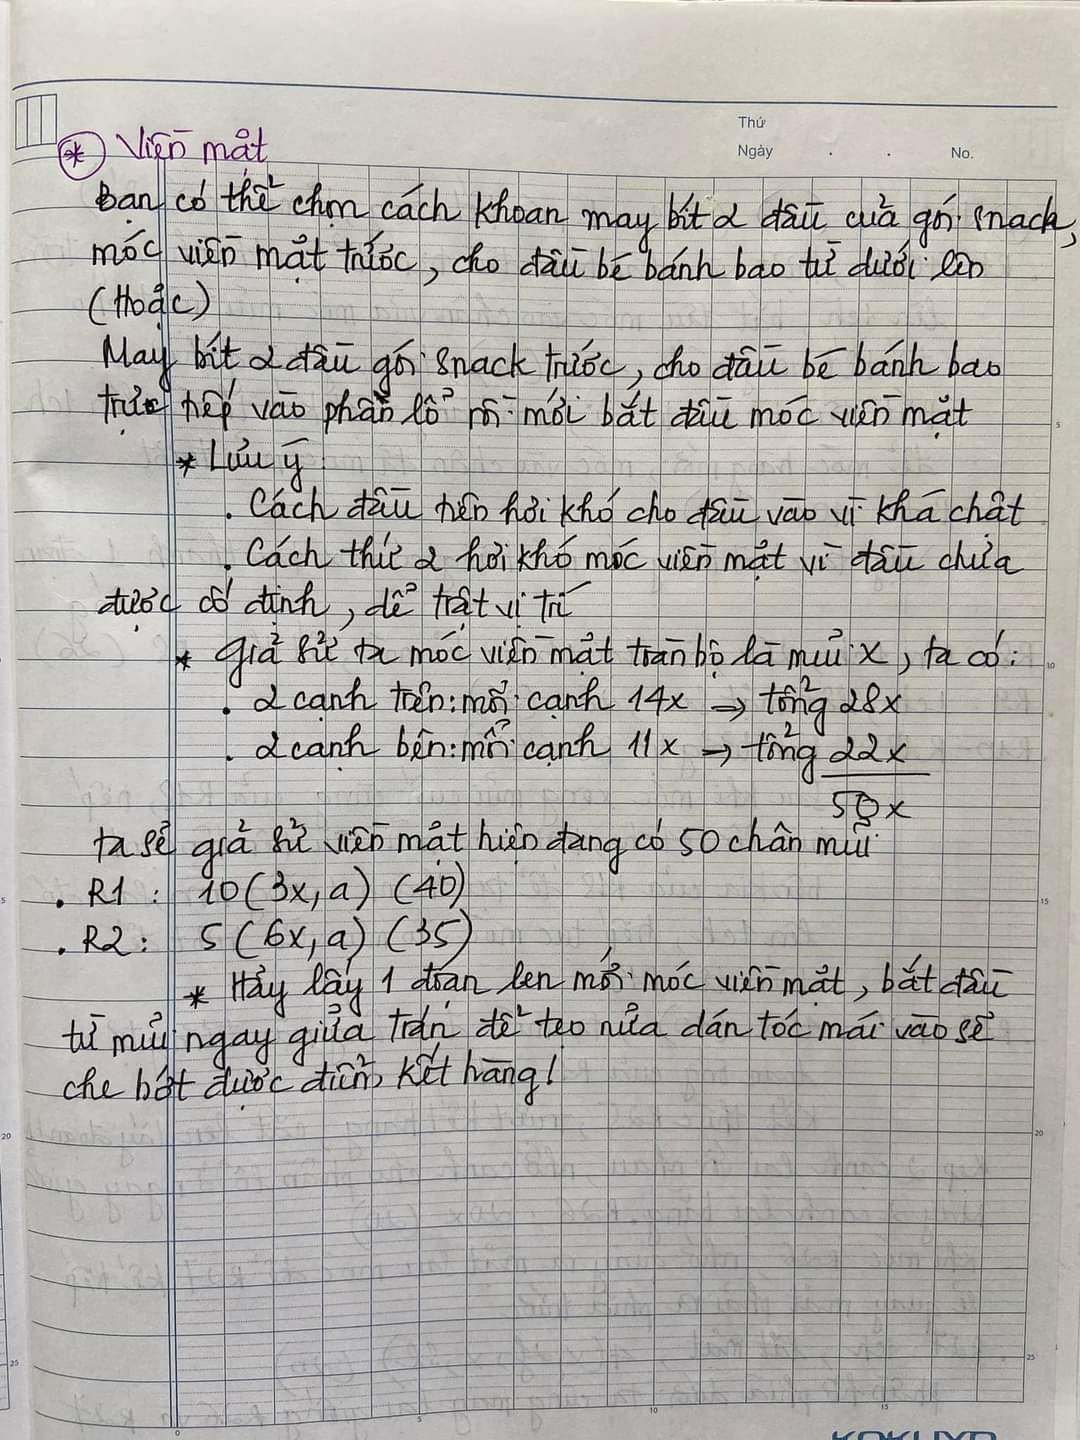 Thứ
Ngày . . No.
* Viền mặt
Bạn có thể chọn cách khoan may bít 2 đầu của gói snack,
móc viền mặt trước, cho đầu bé bánh bao từ dưới lên
(Hoặc)
May bít 2 đầu gói snack trước, cho đầu bé bánh bao
trực tiếp vào phần lổ rồi mới bắt đầu móc viền mặt
* Lưu ý
. Cách đầu tiên hơi khó cho đầu vào vì khá chật
. Cách thứ 2 hơi khó móc viền mặt vì đầu chưa
được cố định, dể trật vị trí
* Giả sử ta móc viền mặt toàn bộ là mũi X, ta có:
. 2 cạnh trên: mỗi cạnh 14x → tổng 28x
. 2 cạnh bên: mỗi cạnh 11x → tổng 22x
50x
ta sẽ giả sử viền mặt hiện đang có 50 chân mũi
. R1 : 10 (3x, a) (40)
. R2 : 5 (6x, a) (35)
* Hãy lấy 1 đoạn len mới móc viền mặt, bắt đầu
từ mũi ngay giữa trán để tẹo nữa dán tóc mái vào sẽ
che bớt được điểm kết hàng!
5
10
15
20
25
5
15
20
25
0
5
10
15
KOKUYO